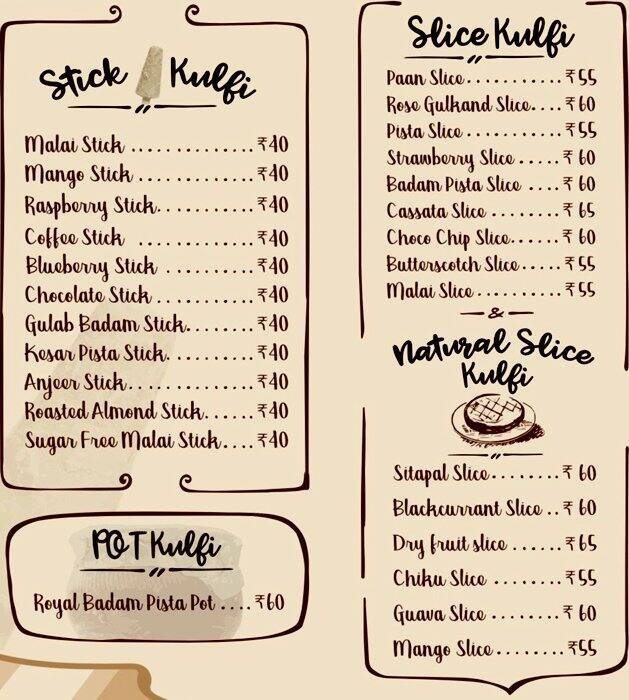 Stick Kulfi
Malai Stick ............. ₹40
Mango Stick ............ ₹40
Raspberry Stick ............ ₹40
Coffee Stick ............ ₹40
Blueberry Stick ......... ₹40
Chocolate Stick ......... ₹40
Gulab Badam Stick ....... ₹40
Kesar Pista Stick ......... ₹40
Anjeer Stick ............ ₹40
Roasted Almond Stick ..... ₹40
Sugar Free Malai Stick .... ₹40
POT Kulfi
Royal Badam Pista Pot .... ₹60
Slice Kulfi
Paan Slice .......... ₹55
Rose Gulkand Slice .... ₹60
Pista Slice .......... ₹55
Strawberry Slice ..... ₹ 60
Badam Pista Slice .... ₹ 60
Cassata Slice ....... ₹ 65
Choco Chip Slice ...... ₹ 60
Butterscotch Slice ..... ₹55
Malai Slice ......... ₹55
&
Natural Slice
Kulfi
Sitapal Slice ........ ₹ 60
Blackcurrant Slice .. ₹ 60
Dry fruit slice ...... ₹65
Chiku Slice ........ ₹55
Guava Slice ....... ₹ 60
Mango Slice ....... ₹55